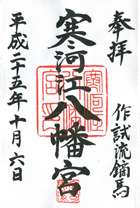 奉拝
作試流鏑馬
寒河江八幡宮
平成二十五年十月六日